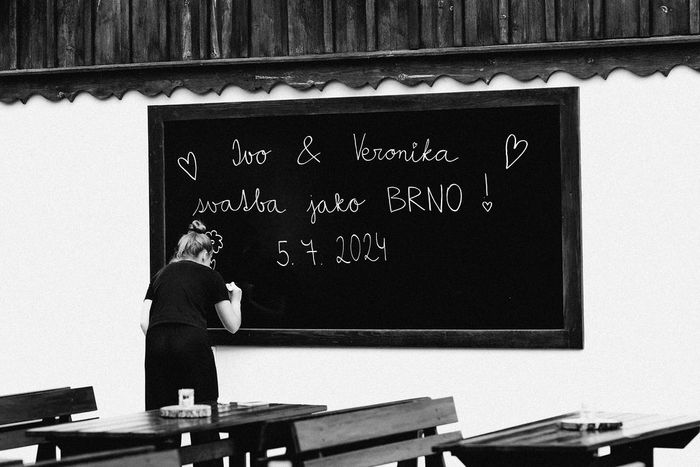 Ivo & Veronika
svatba jako BRNO!
5.7.2024